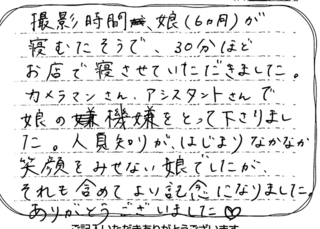 撮影時間、娘(6ヵ月)が
寝むたそうで、30分ほど
お店で寝させていただきました。
カメラマンさん、アシスタントさんで
娘の機嫌をとって下さりまし
た。人見知りがはじまりなかなか
笑顔をみせない娘でしたが、
それも含めてより記念になりました。
ありがとうございました♡
ご記入いただきありがとうございます